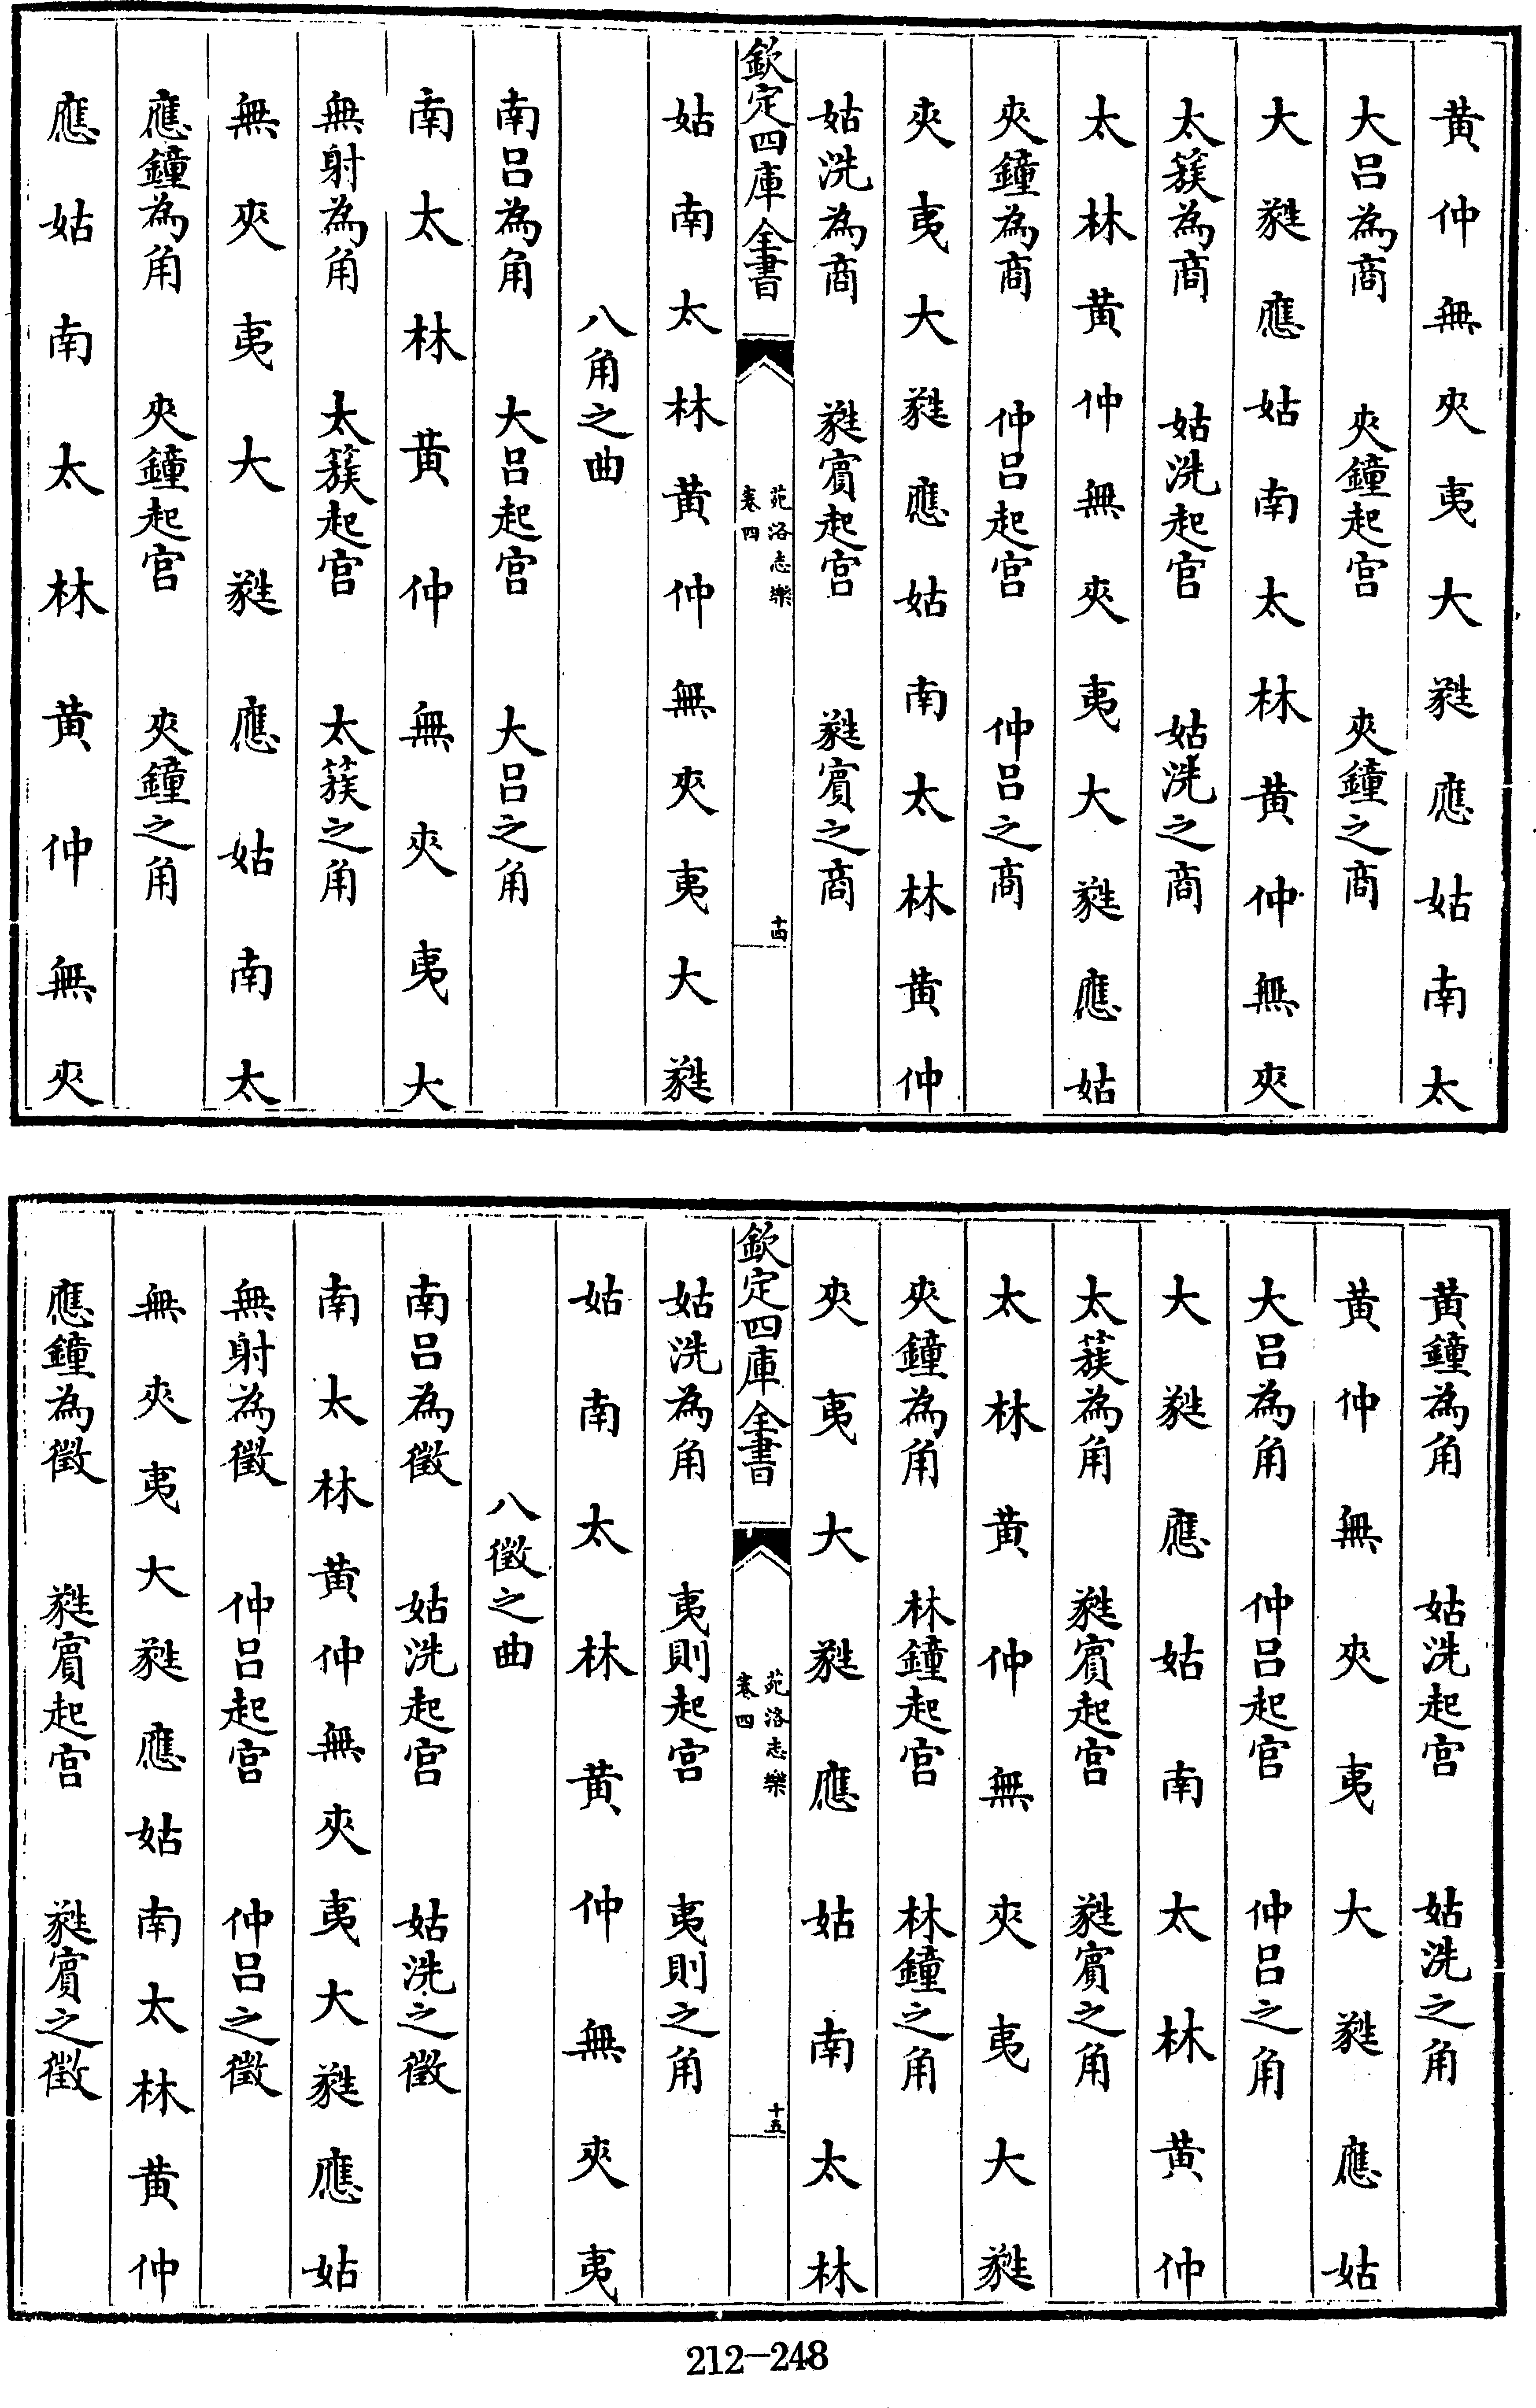 黄仲無夾夷大蕤應姑南太
大呂為商　夾鐘起宫　夾鐘之商
大蕤應姑南太林黄仲無夾
太簇為商　姑洗起宫　姑洗之商
太林黄仲無夾夷大蕤應姑
夾鐘為商　仲呂起宫　仲呂之商
夾夷大蕤應姑南太林黄仲
姑洗為商　蕤賓起宫　蕤賓之商
欽定四庫全書
苑洛志樂
卷四
十四
姑南太林黄仲無夾夷大蕤
八角之曲
南呂為角　大呂起宫　大呂之角
南太林黄仲無夾夷大
無射為角　太簇起宫　太簇之角
無夾夷大蕤應姑南太
應鐘為角　夾鐘起宫　夾鐘之角
應姑南太林黄仲無夾
黄鐘為角　姑洗起宫　姑洗之角
黄仲無夾夷大蕤應姑
大呂為角　仲呂起宫　仲呂之角
大蕤應姑南太林黄仲
太簇為角　蕤賓起宫　蕤賓之角
太林黄仲無夾夷大蕤
夾鐘為角　林鐘起宫　林鐘之角
夾夷大蕤應姑南太林
欽定四庫全書
苑洛志樂
卷四
十五
姑洗為角　夷則起宫　夷則之角
姑南太林黄仲無夾夷
八徵之曲
南呂為徵　姑洗起宫　姑洗之徵
南太林黄仲無夾夷大蕤應姑
無射為徵　仲呂起宫　仲呂之徵
無夾夷大蕤應姑南太林黄仲
應鐘為徵　蕤賓起宫　蕤賓之徵
212-248